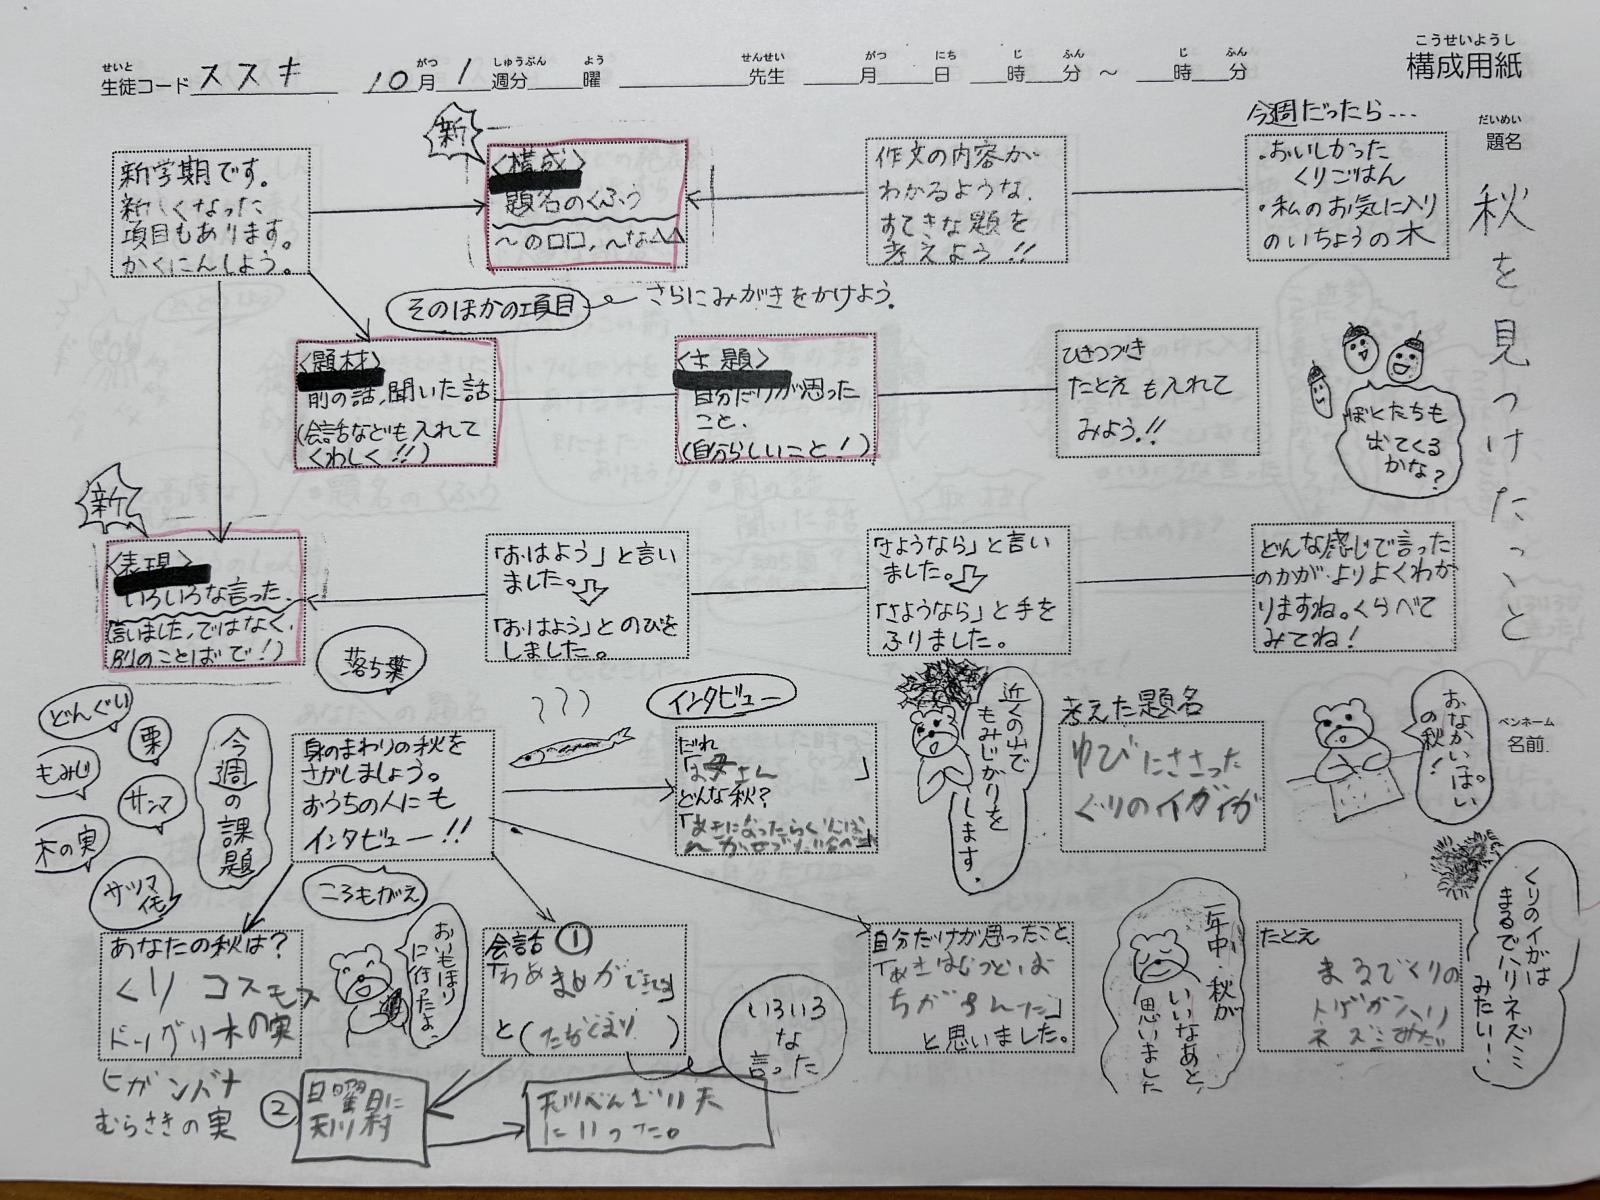 こうせいようし
構成用紙
せいと
生徒コード ススキ
がつ しゅうぶん よう
10月1週分 曜
せんせい
先生
がつ にち じ ふん じ ふん
月 日 時 分 ～ 時 分
だいめい
題名
秋を見つけたこと
ペンネーム
名前
新学期です。
新しくなった
項目もあります。
かくにんしよう。
新
<構成>
題名のくふう
～の□□,～な△△
作文の内容が
わかるような、
すてきな題を
考えよう!!
今週だったら...
・おいしかった
くりごはん
・私のお気に入り
のいちょうの木
そのほかの項目
さらにみがきをかけよう。
<題材>
前の話,聞いた話
(会話なども入れて
くわしく!!)
<主題>
自分だけが思った
こと、
(自分らしいこと!)
ひきつづき
たとえも入れて
みよう!!
ぼくたちも
出てくる
かな?
新
<表現>
いろいろな言った、
(言いました,ではなく、
別のことばで!)
「おはよう」と言い
ました。
「おはよう」とのびを
しました。
「さようなら」と言い
ました。
「さようなら」と手を
ふりました。
どんな感じで言った
のかが、よりよくわか
りますね。くらべて
みてね!
落ち葉
どんぐり
栗
もみじ
サンマ
木の実
サツマ
イモ
ころもがえ
今週の課題
身のまわりの秋を
さがしましょう。
おうちの人にも
インタビュー!!
インタビュー
だれ
「お母さん」
どんな秋?
近くの山で
もみじがりを
します。
考えた題名
ゆびにささった
くりのイガイガ
おなかいっぱい
の秋!
あなたの秋は?
くり コスモス
ドングリ木の実
ヒガンバナ
むらさきの実
おいもほり
に行ったよ。
会話 ①
と( )
いろいろ
な
言った
②
日曜日に
天川村
にいった。
自分だけが思ったこと、
と思いました。
一年中、秋が
いいなあと、
思いました
たとえ
まるでくりの
トゲがハリ
ネズミみたい
くりのイガは
まるでハリネズミ
みたい!!